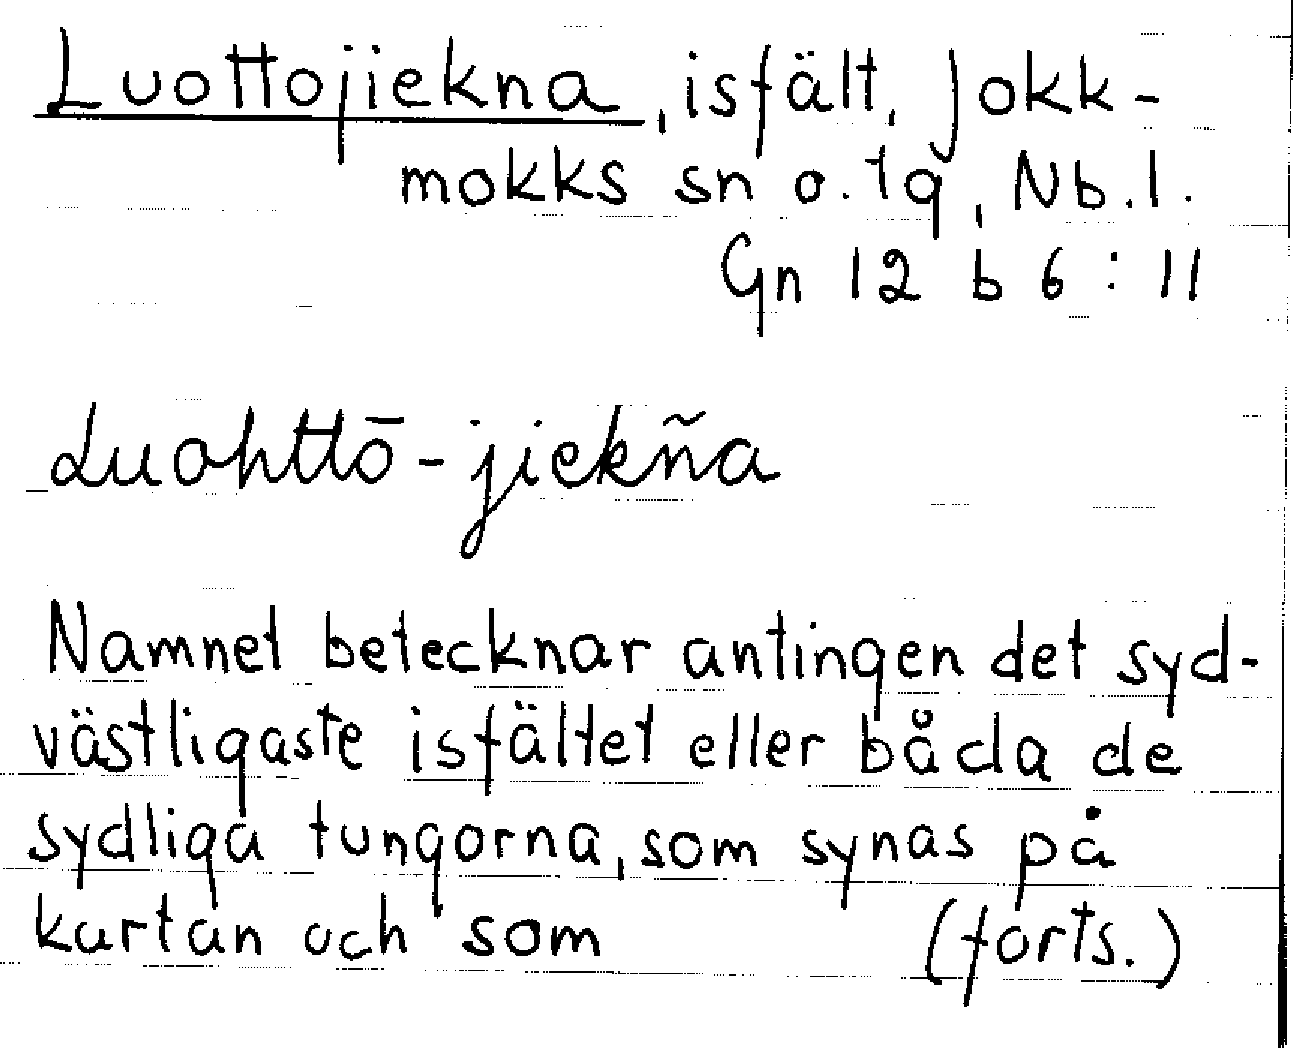 Luottojiekna, isfält, Jokk-
mokks sn o. tg, Nb. l.
Gn 12 b 6 : 11
Luohttō-jiekña
Namnet betecknar antingen det syd-
västligaste isfältet eller båda de
sydliga tungorna, som synas på
kartan och som (forts.)